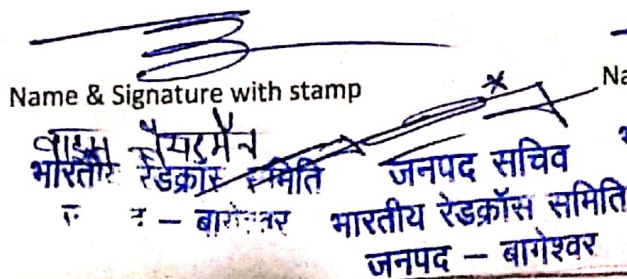 Name & Signature with stamp
Na
वाइस चेयरमैन
भारतीय रेडक्रास समिति
– बागेश्वर
जनपद सचिव
भारतीय रेडक्रॉस समिति
जनपद – बागेश्वर